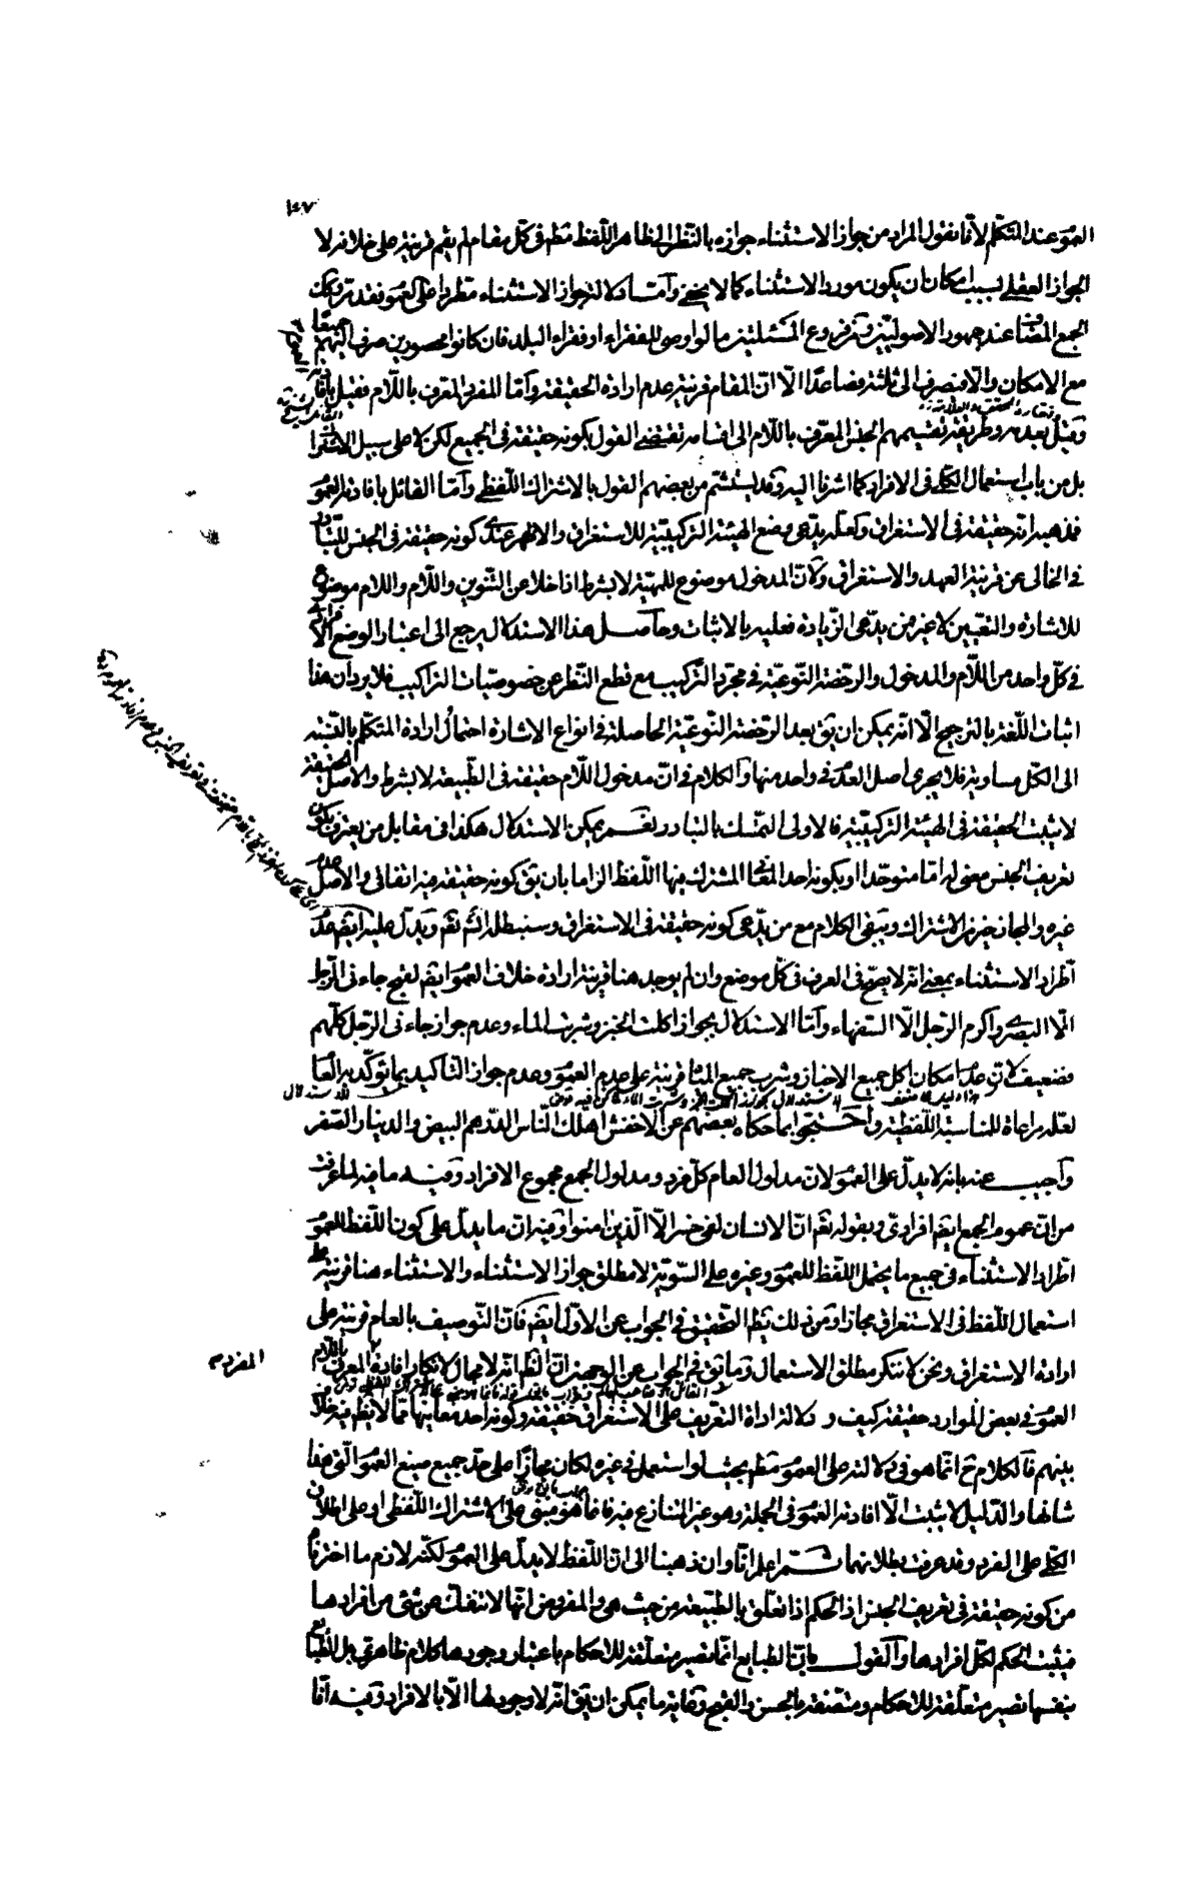 ١٤٧
العموم عند المتكلم لأنا نقول المراد من جواز الاستثناء جوازه بالنظر إلى ظاهر اللفظ مطم في كل مقام لم يقم قرينة على خلافه لا
الجواز العقلي بسبب إمكان ان يكون مورد الاستثناء كما لا يخفى وأما دلالة جواز الاستثناء مطردا على العموم فقد مر وكك
الجمع المضاف عند جمهور الاصوليين ومن فروع المسئلتين ما لو اوصى للفقراء او فقراء البلد فان كانوا محصورين صرف اليهم جميعا
مع الامكان والا فنصرف الى ثلثة فصاعدا الا ان المقام قرينة عدم ارادة الحقيقة وأما المفرد المعرف باللام فقيل بافادته العموم
وقيل بعدمه وطريقة تقسيمهم الجنس المعرف باللام الى اقسامه تقتضي القول بكونه حقيقة في الجميع لكن لا على سبيل الاشتراك
بل من باب استعمال الكلي في الافراد كما اشرنا اليه وقد يستشم من بعضهم القول بالاشتراك اللفظي وأما القائل بافادته العموم
فمذهبه انه حقيقة في الاستغراق ولعله يدعي وضع الهيئة التركيبية للاستغراق والاظهر عندي كونه حقيقة في الجنس للتبادر
في الخالي عن قرينة العهد والاستغراق ولأن المدخول موضوع للمهية لا بشرط اذا خلا عن التنوين واللام واللام موضوع
للاشارة والتعيين لا غير فمن يدعي الزيادة فعليه بالاثبات وحاصل هذا الاستدلال يرجع الى اعتبار الوضع الافرادي
في كل واحد من اللام والمدخول والرخصة النوعية في مجرد التركيب مع قطع النظر عن خصوصيات التراكيب فلا يرد ان هذا
اثبات اللغة بالترجيح الا انه يمكن ان يق بعد الرخصة النوعية الحاصلة في انواع الاشارة احتمال ارادة المتكلم بالنسبة
الى الكل مساوية فلا يجري اصل العدم في واحد منها والكلام في ان مدخول اللام حقيقة في الطبيعة لا بشرط والاصل الحقيقة
لا يثبت الحقيقة في الهيئة التركيبية فالاولى التمسك بالتبادر ونعم يمكن الاستدلال هكذا في مقابل من يعترف بكون
تعريف الجنس معنى له اما متوحدا او بكونه احد المعاني المشترك فيها اللفظ الزاما بان يق كونه حقيقة فيه اتفاقي والاصل عدم
غيره والمجاز خير من الاشتراك ويبقى الكلام مع من يدعي كونه حقيقة في الاستغراق وسنبطله انش تعم ويدل عليه ايضم عدم
اطراد الاستثناء بمعنى انه لا يصح في العرف في كل موضع وان لم يوجد هنا قرينة ارادة خلاف العموم ايضم لقبح جاءني الرجل
الا البصري واكرم الرجل الا السفهاء وأما الاستدلال بجواز اكلت الخبز وشربت الماء وعدم جواز جاءني الرجل كلهم
فضعيف لان عدم امكان اكل جميع الاخباز وشرب جميع المياه قرينة على عدم العموم وعدم جواز التاكيد بما يؤكد به العام
لعله مراعاة للمناسبة اللفظية واحتجوا بما حكاه بعضهم عن الاخفش اهلك الناس الدرهم البيض والدينار الصفر
وأجيب عنه بانه لا يدل على العموم لان مدلول العام كل فرد ومدلول الجمع مجموع الافراد وفيه ما فيه لما عرفت
من ان عموم الجمع ايضم افرادي وبقوله تعم ان الانسان لفي خسر الا الذين امنوا وفيه ان ما يدل على كون اللفظ للعموم
اطراد الاستثناء في جميع ما يحتمل اللفظ للعموم وغيره على السوية لا مطلق جواز الاستثناء والاستثناء هنا قرينة على
استعمال اللفظ في الاستغراق مجازا ومن ذلك يظهر التحقيق في الجواب عن الاول ايضم فان التوصيف بالعام قرينة على
ارادة الاستغراق ونحن لا ننكر مطلق الاستعمال وما يق في الجواب عن الوجهين ان الظم انه لا مجال لانكار افادة المفرد المعرف باللام
العموم في بعض الموارد حقيقة كيف ودلالة اداة التعريف على الاستغراق حقيقة وكونه احد معانيها مما لا يظهر فيه خلاف
بينهم فالكلام ح انما هو في دلالته على العموم مطم بحيث لو استعمل في غيره لكان مجازا على حد جميع صيغ العموم التي هذا
شانها والدليل لا يثبت الا افادته العموم في الجملة وهو غير المتنازع فيه فانما هو مبني على الاشتراك اللفظي او على اطلاق
الكلي على الفرد وقد عرفت بطلانهما ثم اعلم انا وان ذهبنا الى ان اللفظ لا يدل على العموم لكنه لازم ما اخترناه
من كونه حقيقة في تعريف الجنس اذ الحكم اذا تعلق بالطبيعة من حيث هي والمفروض انها لا تنفك عن شئ من افرادها
فيثبت الحكم لكل افرادها والقول بان الطبايع انما تصير متعلقة للاحكام باعتبار وجودها كلام ظاهري بل الطبايع
بنفسها تصير متعلقة للاحكام ومتصفة بالحسن والقبح وغاية ما يمكن ان يق انه لا وجود لها الا بالافراد وفيه انا